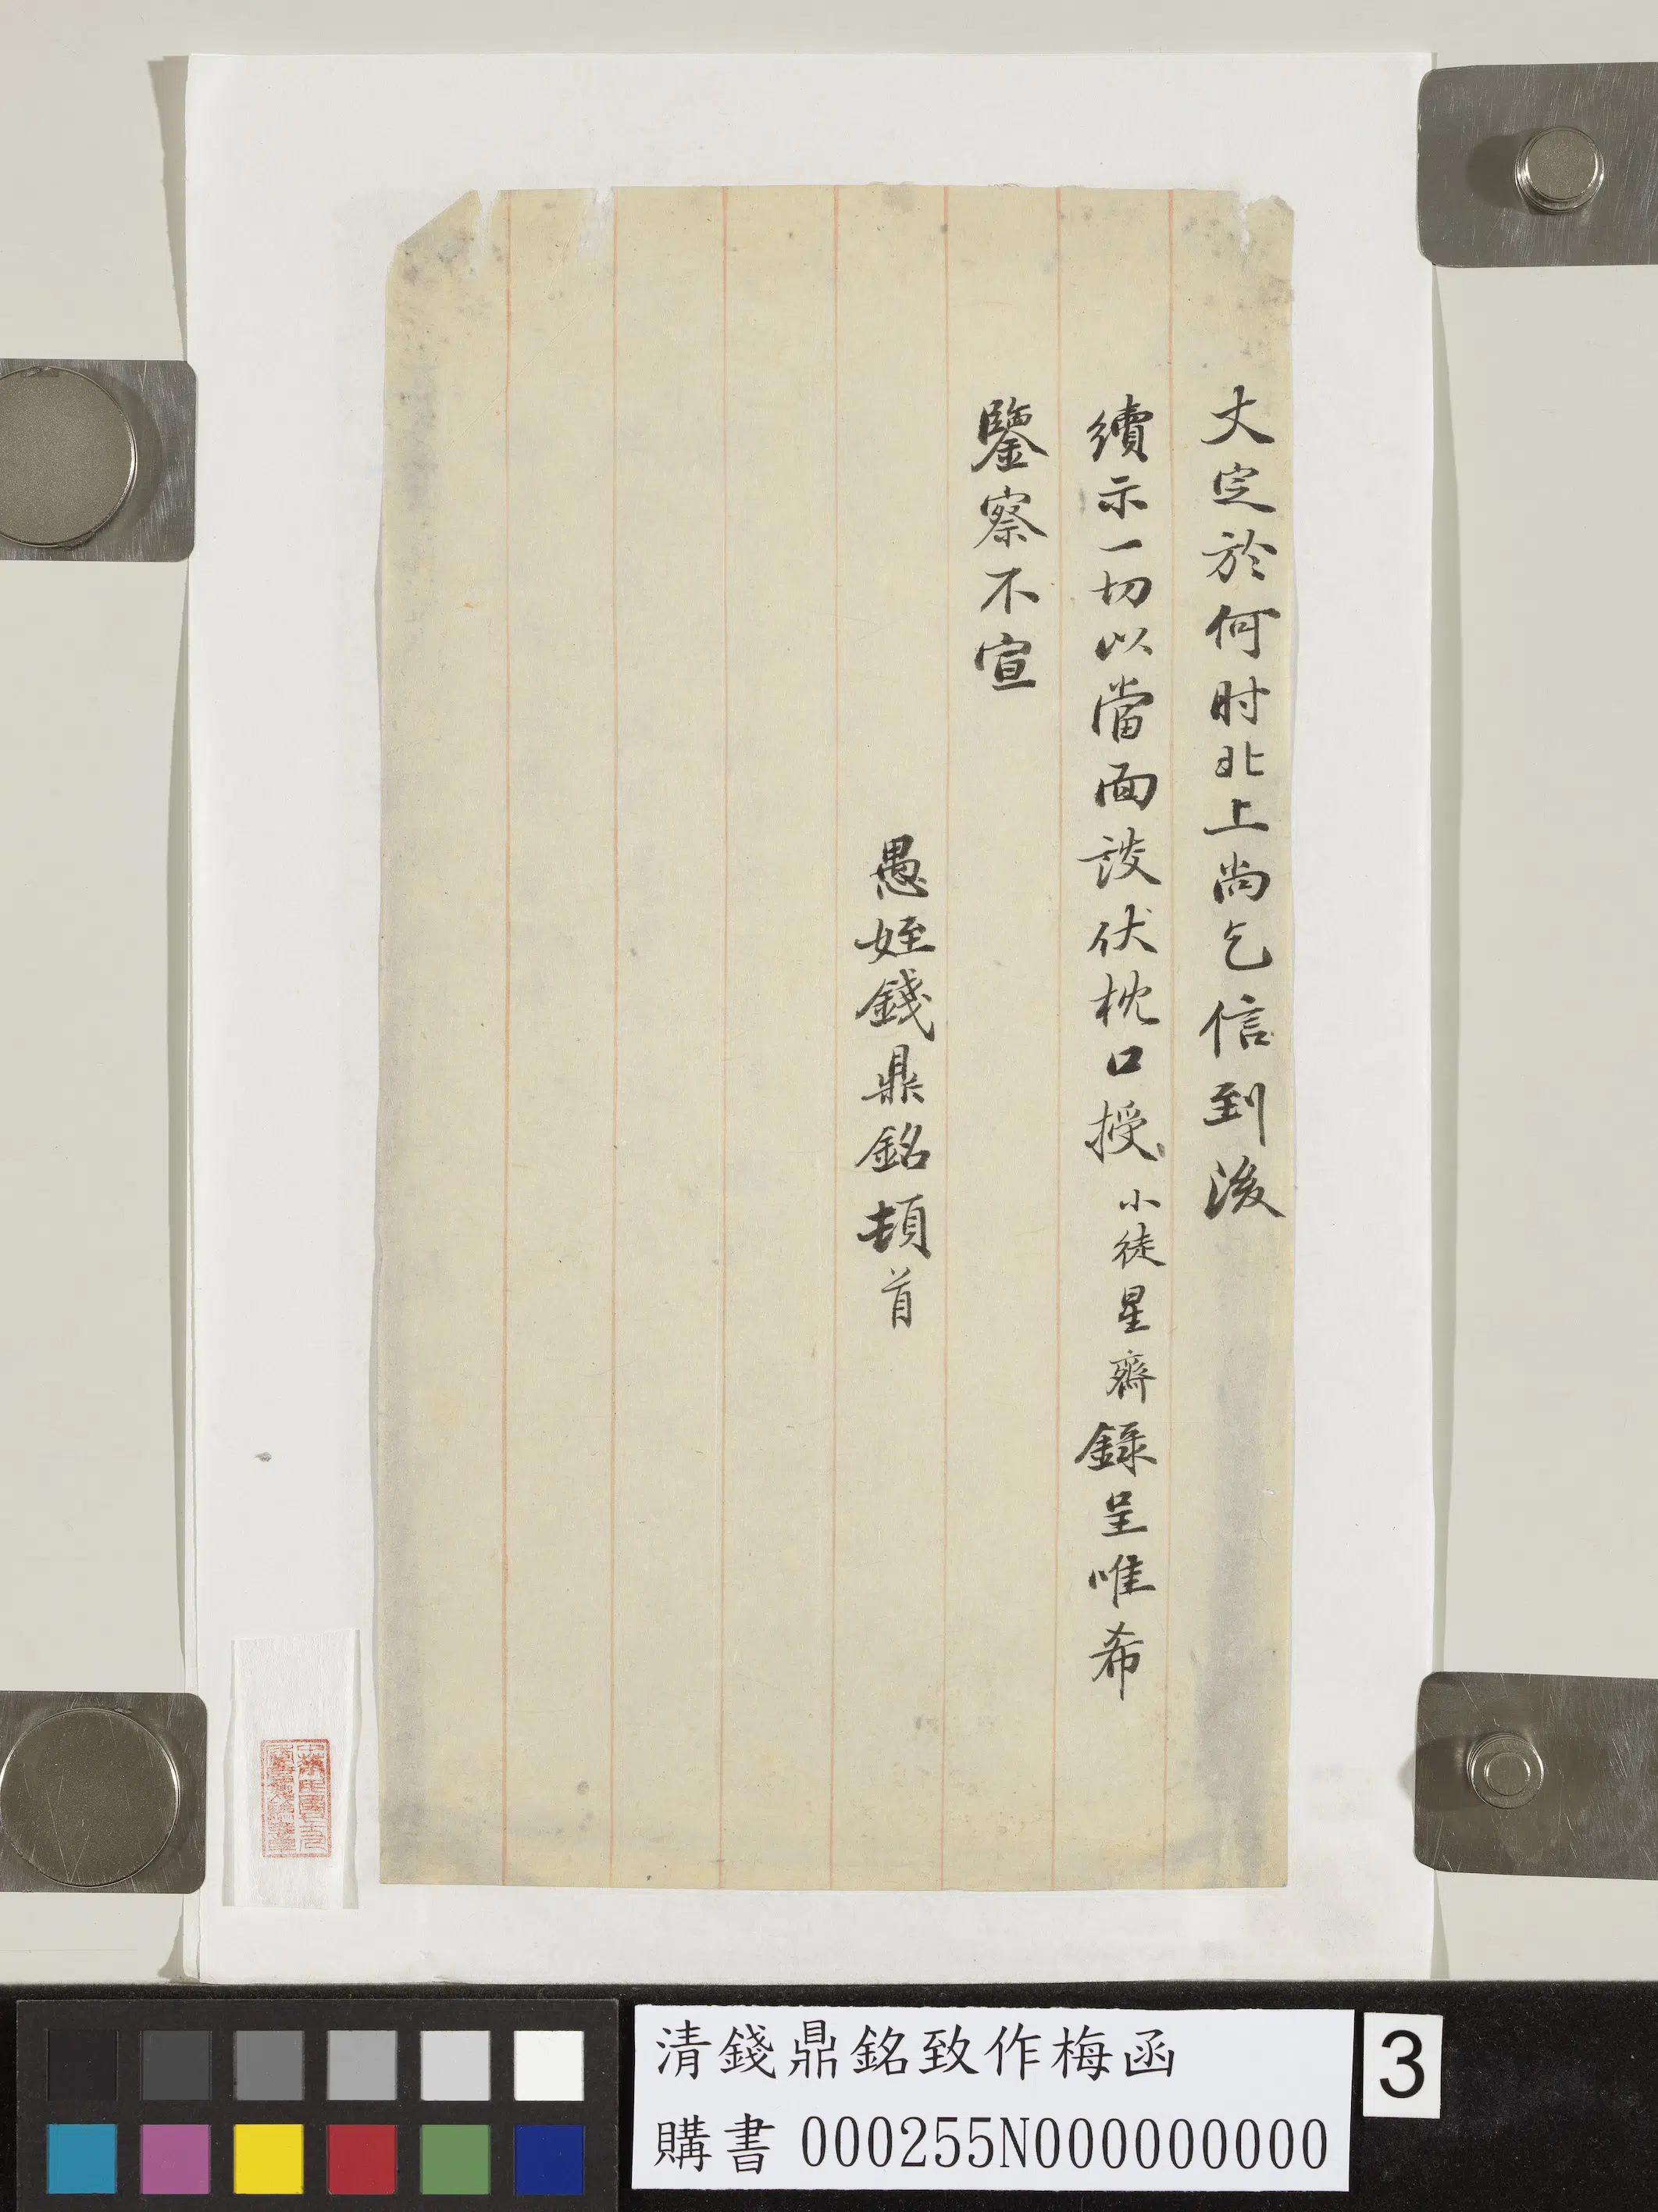 丈定於何时北上尚乞信到後
續示一切以當面談伏枕口授小徒星齋錄呈唯希
鑒察不宣
愚姪錢鼎銘頓首
清錢鼎銘致作梅函
購書 000255N000000000
3